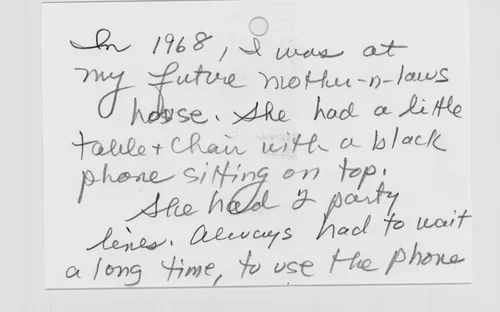 In 1968, I was at
my future mother-n-laws
house. She had a little
table + chair with a black
phone sitting on top.
She had 2 party
lines. Always had to wait
a long time, to use the phone